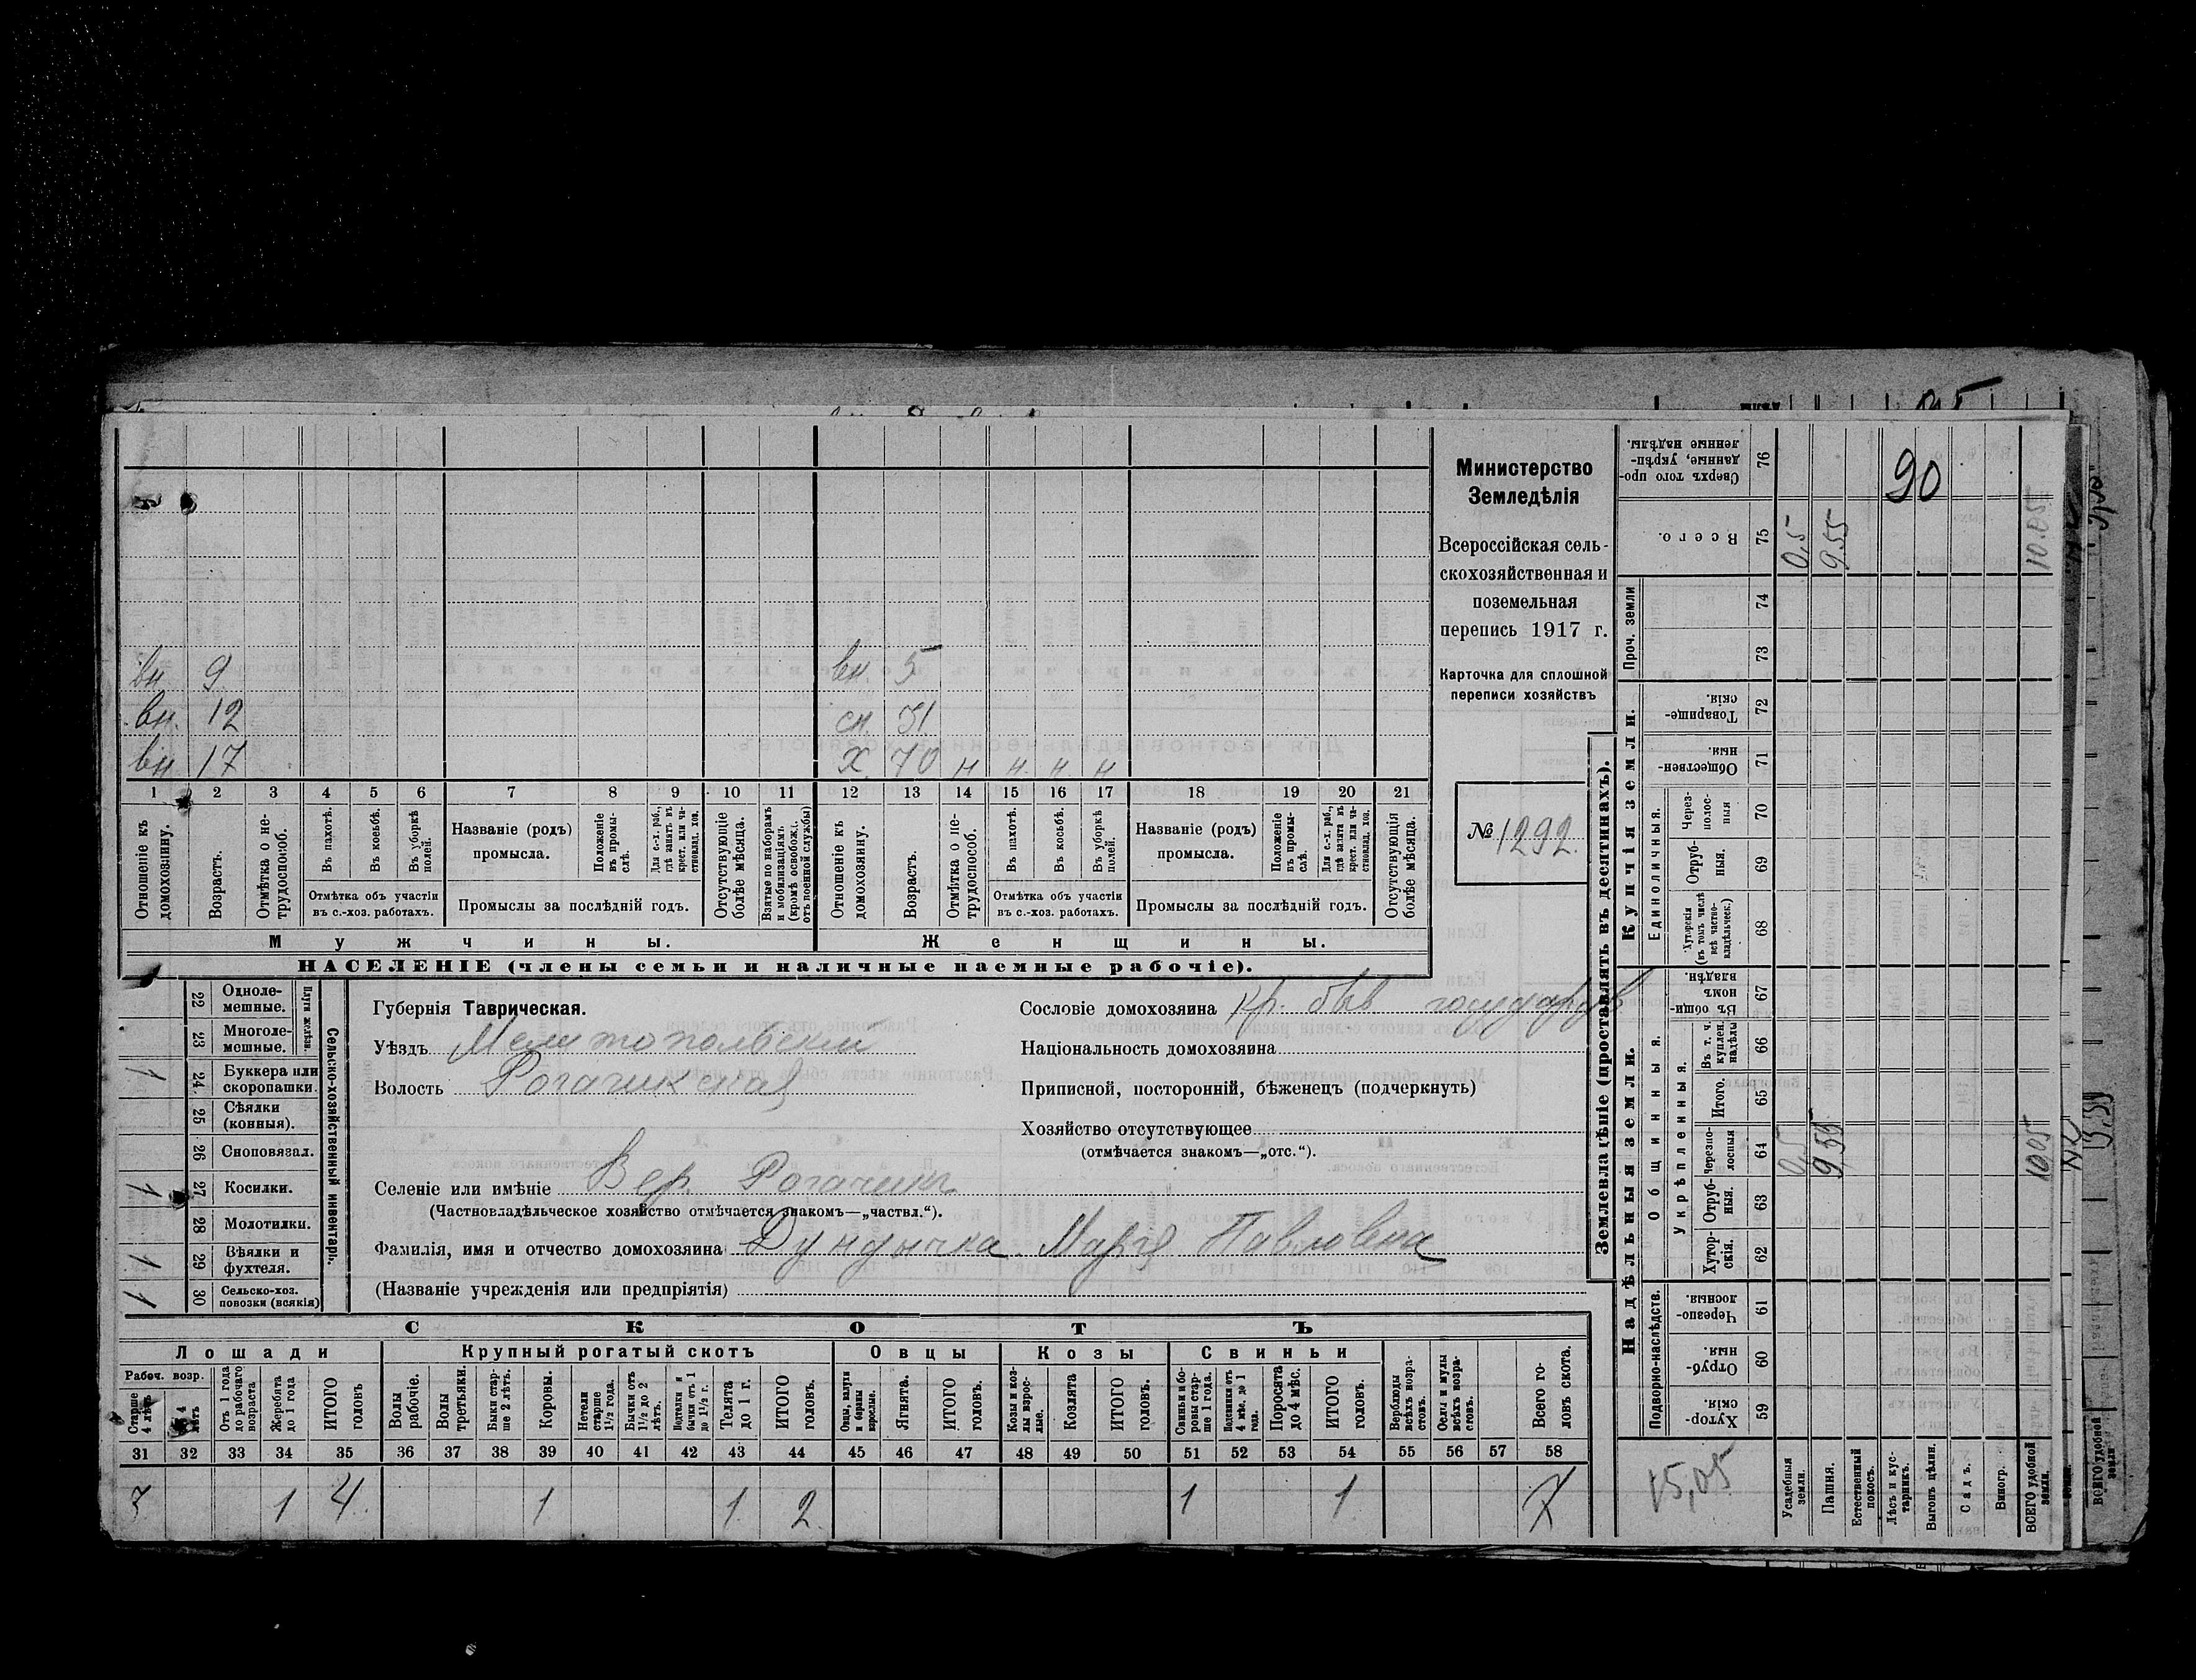 90
вн 9 вн. 5
вн. 12 сн. 51
вн 17 Х 70 н н. н. н
1 2 3 4 5 6 7 8 9 10 11 12 13 14 15 16 17 18 19 20 21
Отношеніе къ домохозяину.
Возрастъ.
Отмѣтка о нетрудоспособ.
Въ пахотѣ.
Въ косьбѣ.
Въ уборкѣ полей.
Отмѣтка объ участіи
въ с.-хоз. работахъ.
Названіе (родъ)
промысла.
Положеніе въ промыслѣ.
Для с.-х. раб., гдѣ занятъ въ крест. или частновлад. хоз.
Промыслы за послѣдній годъ.
Отсутствующіе болѣе мѣсяца.
Взятые по наборамъ и мобилизаціямъ (кромѣ освобожд. отъ военной службы)
Отношеніе къ домохозяину.
Возрастъ.
Отмѣтка о нетрудоспособ.
Въ пахотѣ.
Въ косьбѣ.
Въ уборкѣ полей.
Отмѣтка объ участіи
въ с.-хоз. работахъ.
Названіе (родъ)
промысла.
Положеніе въ промыслѣ.
Для с.-х. раб., гдѣ занята въ крест. или частновлад. хоз.
Промыслы за послѣдній годъ.
Отсутствующія болѣе мѣсяца.
Мужчины. Женщины.
НАСЕЛЕНІЕ (члены семьи и наличные наемные рабочіе).
Министерство
Земледѣлія
Всероссійская сель-
скохозяйственная и
поземельная
перепись 1917 г.
Карточка для сплошной
переписи хозяйствъ
№ 1292.
Сельско-хозяйственный инвентарь.
Плуги желѣзн.
22 Одноле-
мешные.
23 Многоле-
мешные.
1 24 Буккера или
скоропашки.
25 Сѣялки
(конныя).
26 Сноповязал.
1 27 Косилки.
28 Молотилки.
1 29 Вѣялки и
фухтеля.
1 30 Сельско-хоз.
повозки (всякія)
Губернія Таврическая.
Уѣздъ Мелитопольскій
Волость Рогачикская
Сословіе домохозяина кр. быв государств
Національность домохозяина
Приписной, посторонній, бѣженецъ (подчеркнуть)
Хозяйство отсутствующее
(отмѣчается знакомъ—„отс.“).
Селеніе или имѣніе Вер. Рогачикъ
(Частновладѣльческое хозяйство отмѣчается знакомъ—„частвл.“).
Фамилія, имя и отчество домохозяина Дундычка Марія Павловна
(Названіе учрежденія или предпріятія)
СКОТЪ
Лошади Крупный рогатый скотъ Овцы Козы Свиньи
Рабоч. возр.
Старше 4 лѣтъ
4 лѣтъ
Отъ 1 года до рабочаго возраста
Жеребята до 1 года
ИТОГО головъ
Волы рабочіе.
Волы третьяки.
Быки старше 2 лѣтъ.
Коровы.
Нетели старше 1½ года.
Бычки отъ 1½ до 2 лѣтъ.
Подтелки и бычки отъ 1 до 1½ г.
Телята до 1 г.
ИТОГО головъ.
Овцы, валухи и бараны взрослые.
Ягнята.
ИТОГО головъ.
Козы и козлы взрослые.
Козлята
ИТОГО головъ.
Свиньи и боровы старше 1 года.
Подсвинки отъ 4 мѣс. до 1 года.
Поросята до 4 мѣс.
ИТОГО головъ.
Верблюды всѣхъ возрастовъ.
Ослы и мулы всѣхъ возрастовъ.
Всего головъ скота.
31 32 33 34 35 36 37 38 39 40 41 42 43 44 45 46 47 48 49 50 51 52 53 54 55 56 57 58
3 1 4. 1 1 2 1 1 7
Землевладѣніе (проставлять въ десятинахъ).
Надѣльныя земли. Купчія земли.
Подворно-наслѣдств.
Общинныя.
Укрѣпленныя.
Единоличныя.
Проч. земли
Хуторскія. 59
Отрубныя. 60
Черезполосныя. 61
Хуторскія. 62
Отрубныя. 63
Черезполосныя 64
Итого. 65
Въ т. ч. куплен. надѣлы 66
Въ общинномъ владѣн. 67
Хуторскія (въ томъ числѣ всѣ частновладѣльческ.) 68
Отрубныя. 69
Черезполосныя 70
Общественныя. 71
Товарищескія. 72
73
74
Всего. 75
Сверхъ того проданные, укрѣпленные надѣлы. 76
15,05
Усадебныя земли. 0,5 0,5
Пашня. 9,55 9.55
Естественный покосъ.
Лѣсъ и кустарникъ.
Выгонъ цѣлин.
Садъ.
Виногр.
ВСЕГО удобной земли. 10.05 10.05
ВСЕГО удобной земли